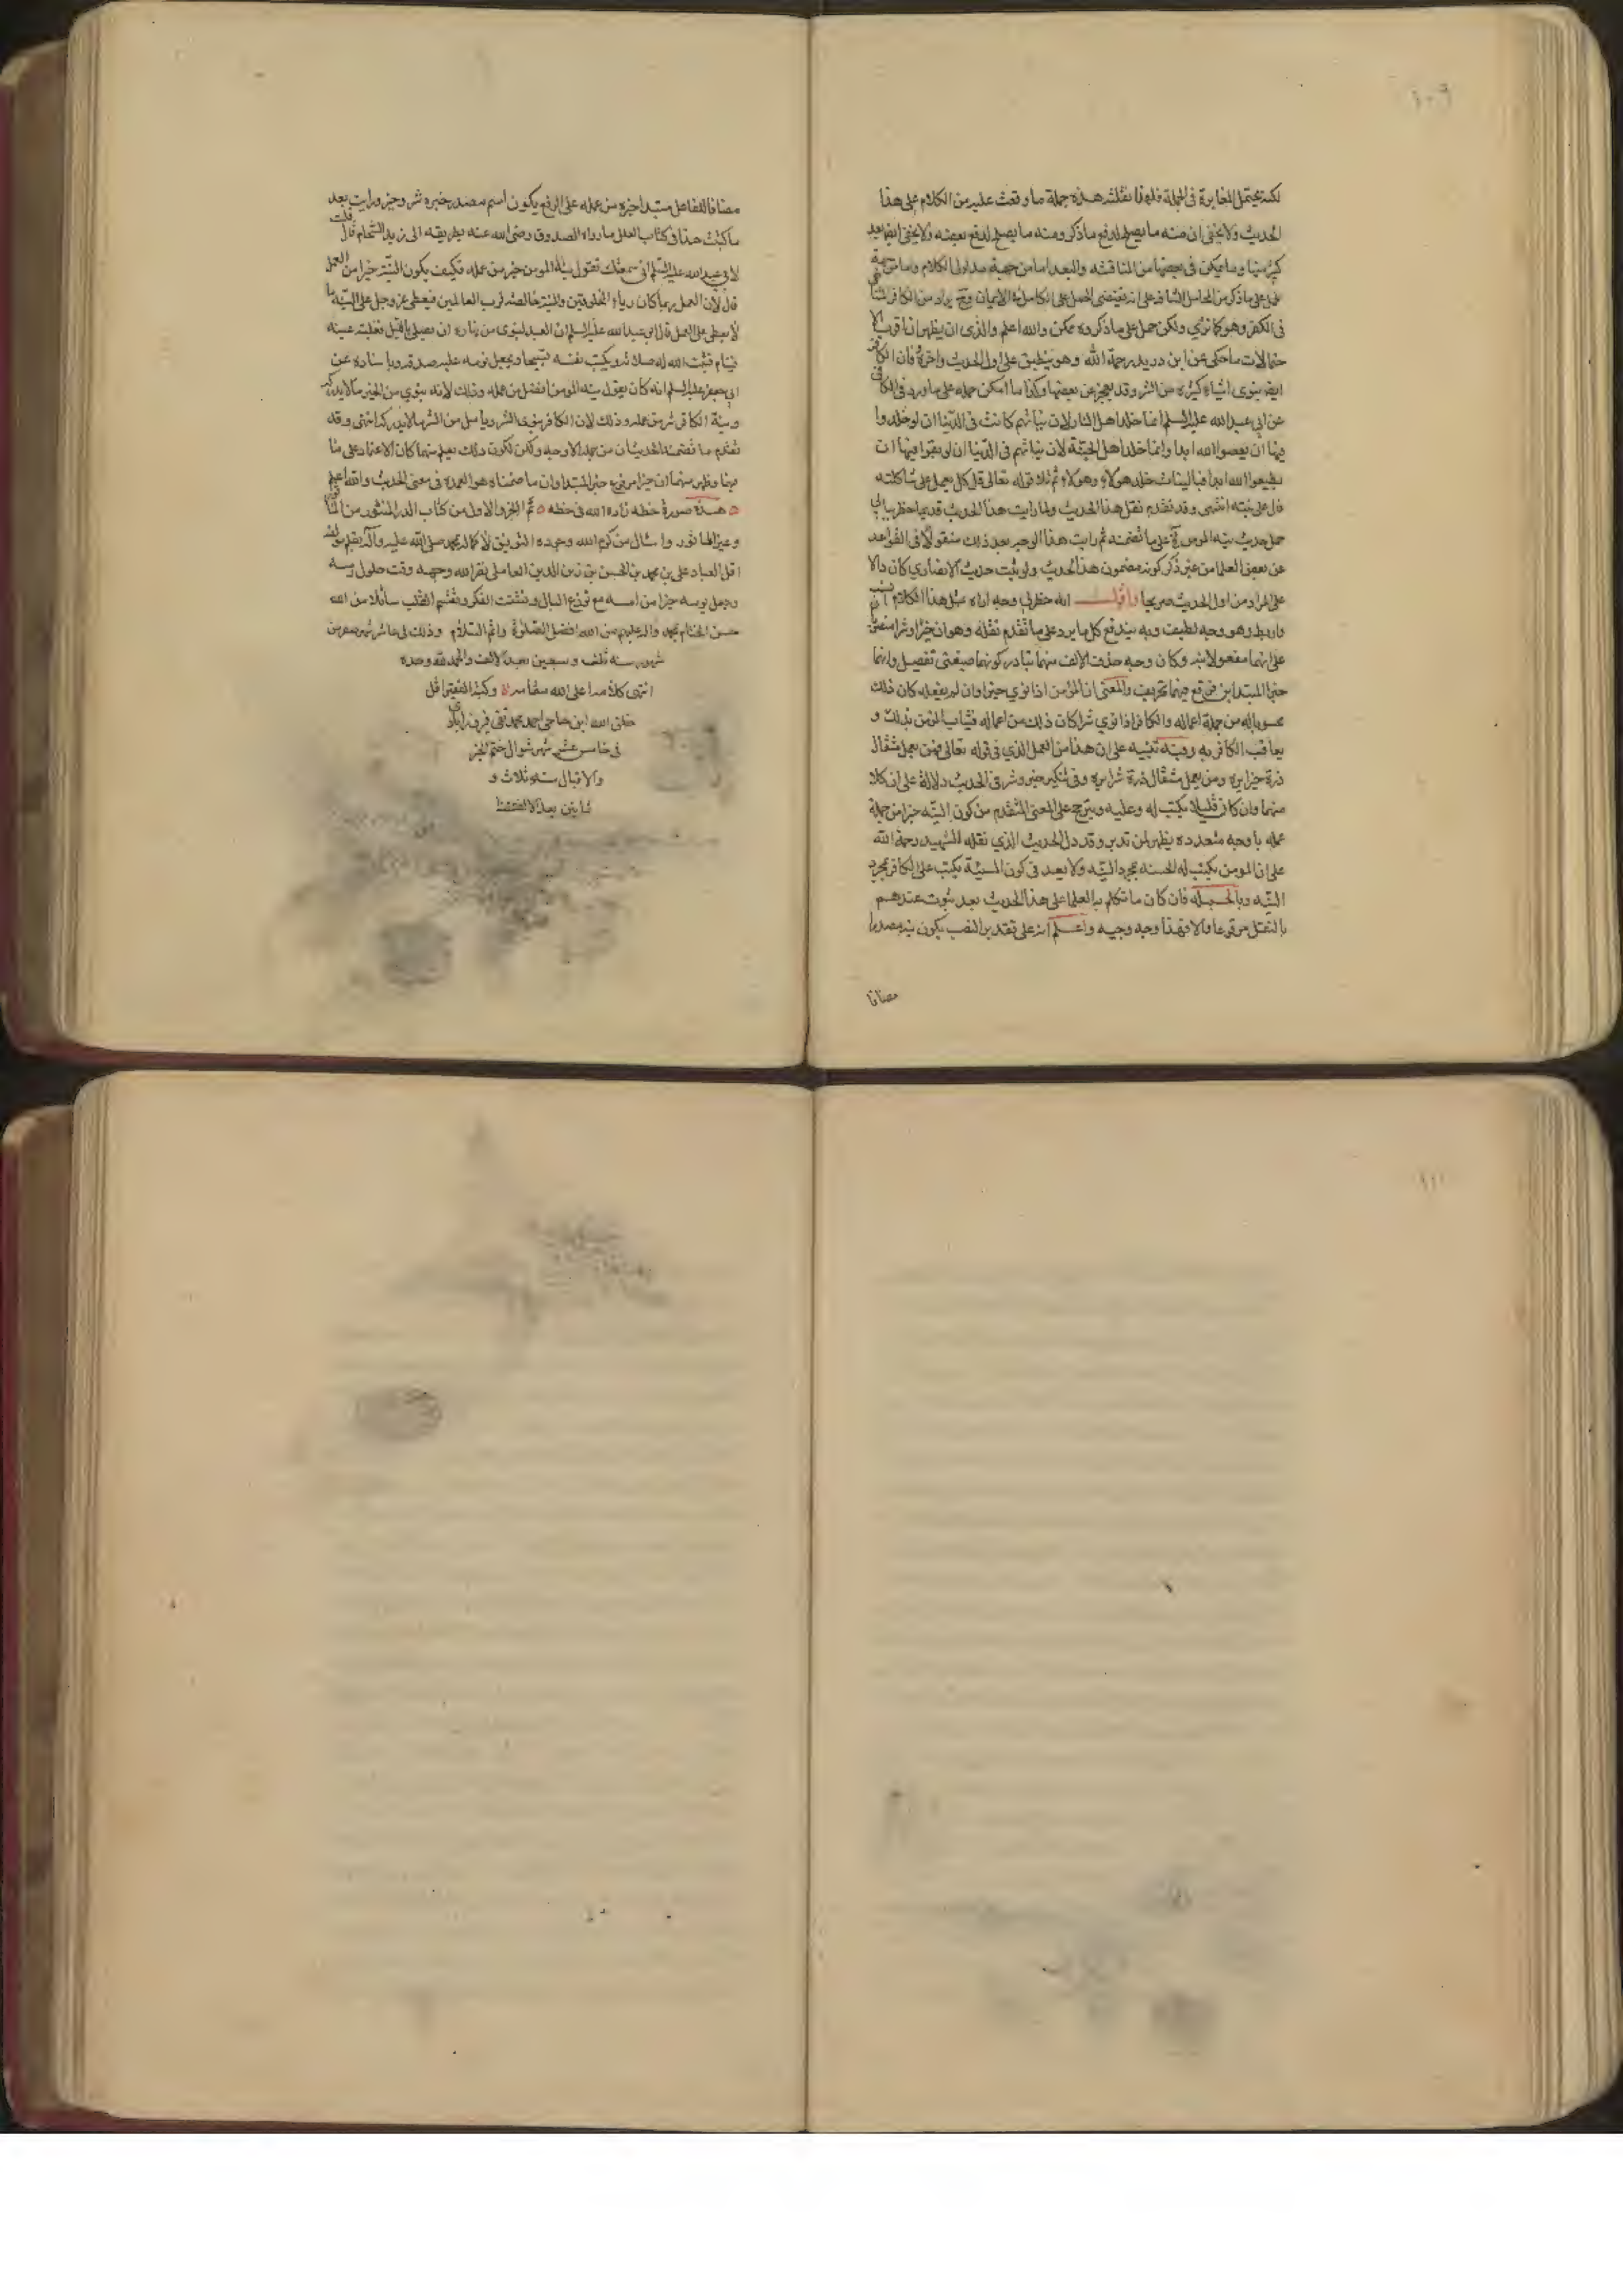 ١٠٩
لكنه يحتمل المغايرة في الجملة فلهذا نقلته هذه جملة ما وقفت عليه من الكلام على هذا
الحديث ولا يخفى ان منه ما يصلح لدفع ما ذكر ومنه ما يصلح لدفع بعضه ولا يخفى ايضا بعد
كثير منها وما يمكن في بعضها من المناقشه والبعد اما من جهة مدلول الكلام واما من جهة
في الكفر وهو كما ترى ولكن حمل على ما ذكروه ممكن والله اعلم والذى ان يظهر انا قرب الا
حتمالات ما حكى عن ابن دريد رحمة الله وهو ينطبق على اول الحديث واخره فان الكافر
ايضا ينوى اشياء كثيره من الشر وقد يعجز عن بعضها وكذا ما امكن حمله على ما ورد في الكافي
عن ابي عبد الله عليه السلم انما خلد اهل النار لان نياتهم كانت في الدنيا ان لو خلدوا
فيها ان يعصوا الله ابدا وانما خلد اهل الجنة لان نياتهم في الدنيا ان لو بقوا فيها ان
يطيعوا الله ابدا فبالنيات خلد هولاء وهولاء ثم تلا قوله تعالى قل كل يعمل على شاكلته
قال على نيته انتهى وقد تقدم نقل هذا الحديث ولما رايت هذا الحديث قديما خطر ببالي
حمل حديث نيه المومن على ما تضمنه ثم رايت هذا الوجه بعد ذلك منقولا في القواعد
عن بعض العلما من غير ذكر كونه مضمون هذا الحديث ولو ثبت حديث الانصاري كان دالا
على المراد من اول الحديث صريحا واقول الله خطر لي وجه اراه مثل هذا الكلام انسب
واربط وهو وجه لطيف وبه يندفع كل ما يرد على ما تقدم نقله وهو ان خيرا وشرا منصوبان
على انهما مفعولا نيه وكان وجه حذف الالف منهما تبادر كونهما صيغتى تفصيل وانهما
خبر المبتدا بن فوقع فيهما تحريف والمعنى ان المؤمن اذا نوي خيرا وان لم يفعله كان ذلك
محسوبا له من جملة اعماله والكافر اذا نوي شرا كان ذلك من اعماله فيثاب المؤمن بذلك و
يعاقب الكافر به وفيه تنبيه على ان هذا من العمل الذي في قوله تعالى فمن يعمل مثقال
ذرة خيرا يره ومن يعمل مثقال ذرة شرا يره وفي تنكير خير وشر في الحديث دلالة على ان كلا
منهما وان كان قليلا يكتب له وعليه ويترجح على المعنى المتقدم من كون النيه خيرا من جملة
عمله باوجه متعدده يظهر لمن تدبر وقد دل الحديث الذي نقله الشهيد رحمة الله
على ان المومن يكتب له الحسنه بمجرد النيه ولا يبعد في كون السيئة يكتب على الكافر بمجرد
النيه وبالجمله فان كان ما تكلم به العلما على هذا الحديث بعد ثبوت عندهم
بالنقل مرفوعا والا فهذا وجه وجيه واعلم انه على تقدير النصب يكون نيه مصدرا
مضافا
مضافا للفاعل مبتدا خبره من عمله على الرفع يكون اسم مصدر خبره شر وخير ورايت بعد
ما كتبت هذا في كتاب العلل ما رواه الصدوق رضى الله عنه بطريقه الى زيد الشحام قال قلت
لابي عبد الله عليه السلم انى سمعتك تقول نية المومن خير من عمله فكيف يكون النية خيرا من العمل
قال لان العمل ربما كان رياء المخلوقين والنية خالصه لرب العالمين فيعطى عز وجل على النية ما
لا يعطى على العمل قال ابى عبد الله عليه السلم ان العبد لينوى من نهاره ان يصلى بالليل فغلبته عينه
فينام فيثبت الله له صلاته ويكتب نفسه تسبيحا ويجعل نومه عليه صدقه وباسناده عن
ابى جعفر عليه السلم انه كان يقول نيه المومن افضل من عمله وذلك لانه ينوي من الخير ما لا يدركه
ونية الكافر شر من عمله وذلك لان الكافر ينوى الشر ويامل من الشر ما لا يدركه انتهى وقد
تقدم ما تضمنه الحديثان من جملة الاوجه ولكن لكون ذلك يعلم منهما كان الاعتماد على ما
فيهما وظهر منهما ان خيرا مرفوع خبر المبتدا وان ما ضمناه هو العمدة في معنى الحديث والله اعلم
هذه صورة خطه زاده الله في حظه تم الجزو الاول من كتاب الدر المنثور من الماثور
وغير الماثور واسال من كرم الله وجوده التوفيق لاكماله بمحمد صلى الله عليه وآله بقلم مولفه
اقل العباد على بن محمد بن الحسن بن زين الدين العاملى بقر الله وجهه وقت حلول رمسه
وجعل يومه خيرا من امسه مع توزع البال وتشتت الفكر وتقسم القلب سائلا من الله
حسن الختام بمحمد واله عليهم من الله افضل الصلوة واتم السلام وذلك في عاشر شهر صفر من
شهور سنه ثلث وسبعين بعد الالف والحمد لله وحده
انتهى كلامه اعلى الله مقامه وكتبه الفقير اقل
خلق الله ابن حاجى احمد محمد تقى
في خامس عشر شهر شوال ختم بالخير
والاقبال سنه ثلاث و
ثمانين بعد الالف
١١٠